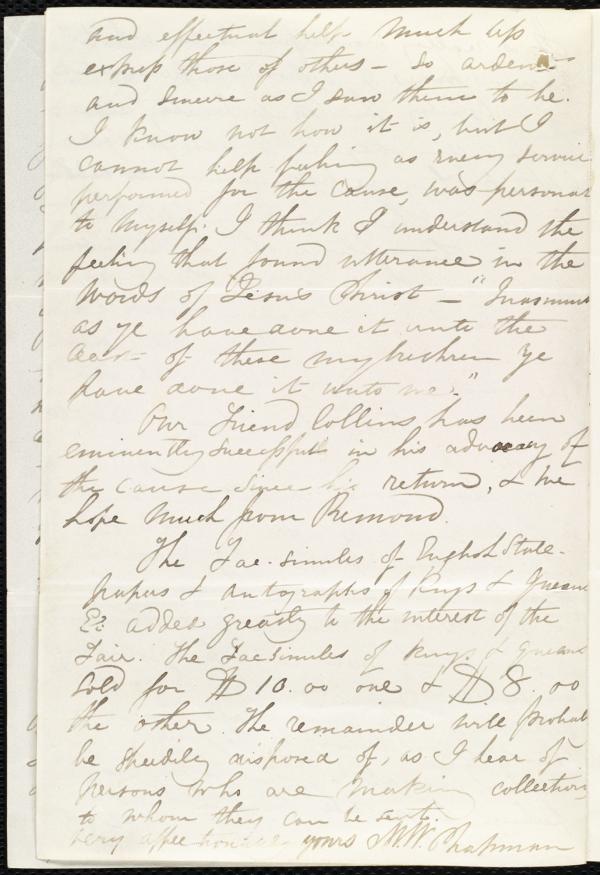 and effectual help. Much less
expup those of others - so ardent
and sincere as I saw them to be.
I know not how it is, but I
cannot help feeling as every service
performed for the cause, was personal
to myself. I think I understand the
feeling that found utterance in the
words of Jesus Christ - "Inasmuch
as ye have done it unto the
least of these my brethren ye
have done it unto me."
Our friend Collins has been
eminently successful in his advocacy of
the cause since his return, & we
hope much from Remond.
The Fac-similes of English State-
papers & autographs of Kings & Queens
&c added greatly to the interest of the
Fair. The Facsimiles of Kings & Queens
sold for $10.00 one & $8.00
the other. The remainder will probab
be speedily disposed of, as I hear of
persons who are making collections
to whom they can be sent.
very affectionately yours M.W. Chapman